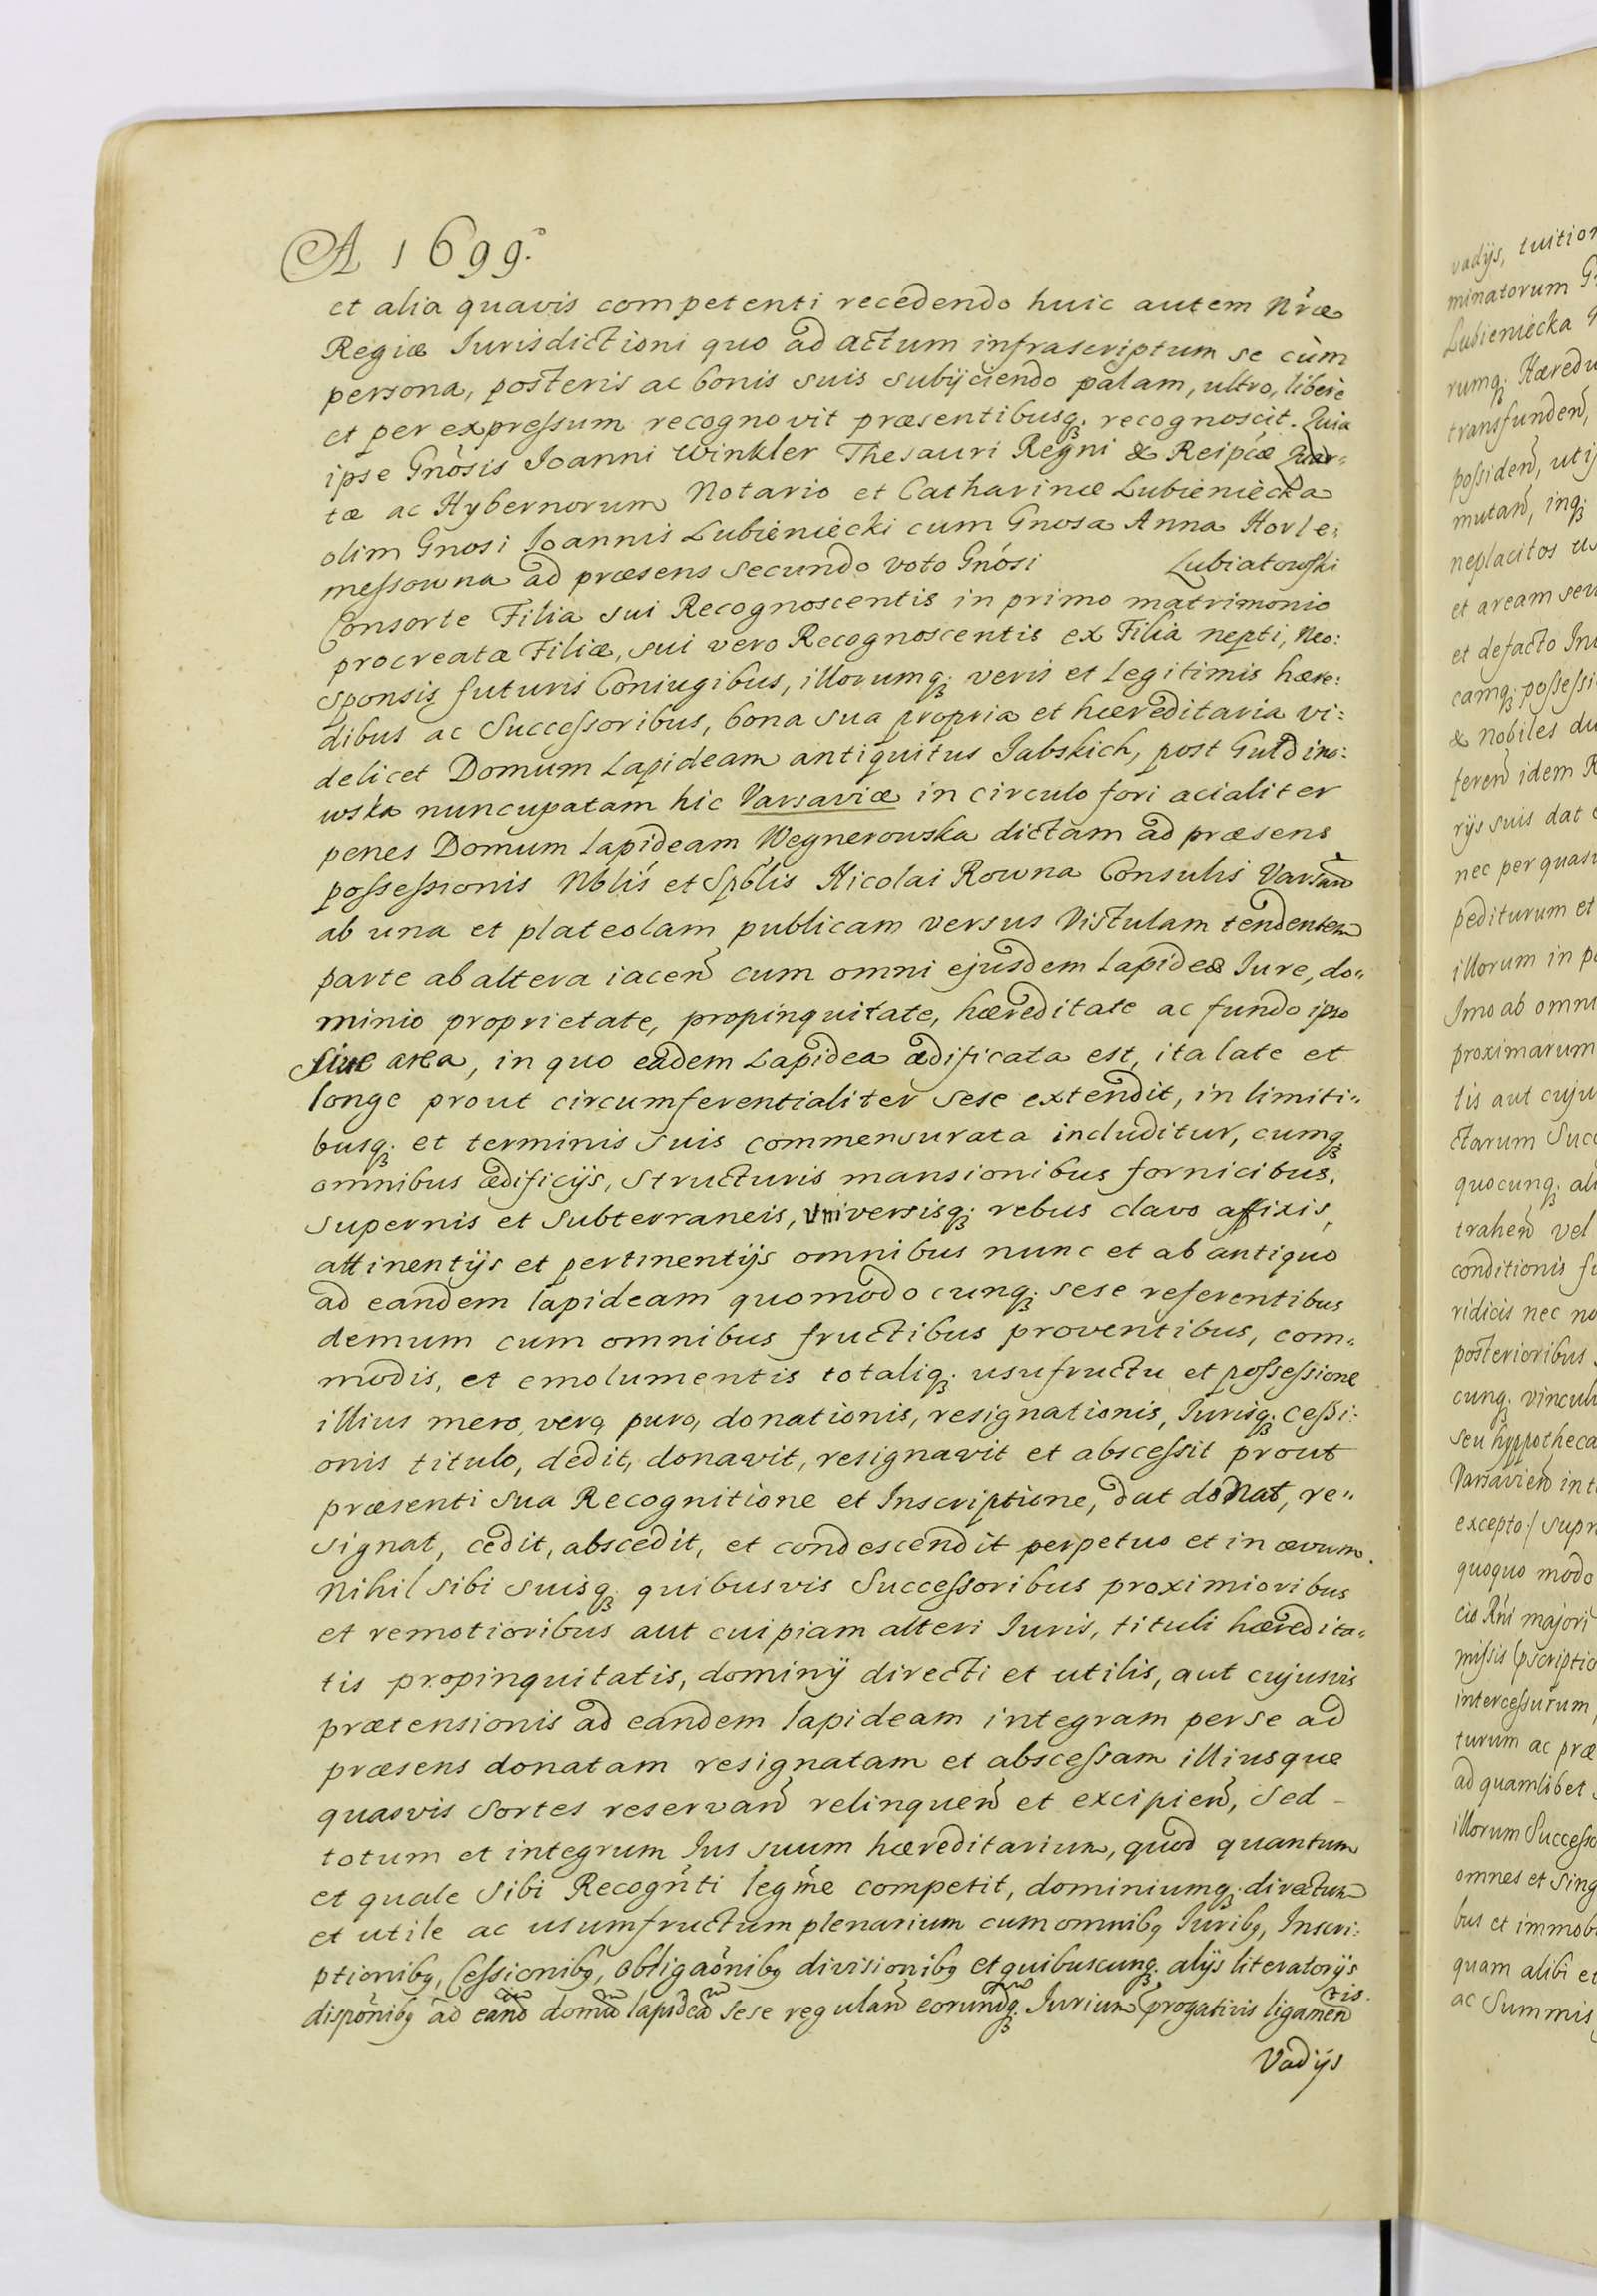 A 1699.
et alia quavis competenti recedendo huic autem Nr̃æ
Regiæ Iurisdictioni quo ad actum infrascriptum se cùm
persona, posteris ac bonis suis subijciendo palam, ultro, liberè
et per expreſsum recognovit præsentibusq; recognoscit. Quia
ipse Gnõsis Joanni Winkler Thesauri Regni & Reipcæ Quar=
tæ ac Hybernorum Notario et Catharinæ Lubieniecka
olim Gnosi Joannis Lubieniecki cum Gnosa Anna Horle:
meſsowna ad præsens secundo voto Gnósi Lubiatowſki
Consorte Filia sui Recognoscentis in primo matrimonio
procreata Filiæ, sui vero Recognoscentis ex Filia nepti, Neo:
sponsis futuris Coniugibus, illorumq; veris et legitimis hære:
dibus ac Succeſsoribus, bona sua propria et hæreditaria vi:
delicet Domum Lapideam antiquitus Jabskich, post Guldino:
wska nuncupatam hic Varsaviæ in circulo fori acialiter
penes Domum lapideam Wegnerowska dictam ad præsens
poſseſsionis Nblis et Spblis Nicolai Rowna Consulis Varsavñ
ab una et plateolam publicam versus Vistulam tendentem
parte ab altera iaceñ cum omni ejusdem Lapideæ Iure, do=
minio proprietate, propinquitate, hæreditate ac fundo ipso
sive area, in quo eadem Lapidea ædificata est, ita late et
longe prout circumferentialiter sese extendit, in limiti=
busq; et terminis suis commensurata includitur, cumq;
omnibus ædificijs, structuris mansionibus fornicibus,
supernis et subterraneis, Universisq; rebus clavo affixis,
attinentijs et pertinentijs omnibus nunc et ab antiquo
ad eandem lapideam quomodocunq; sese referentibus
demum cum omnibus fructibus proventibus, com=
modis, et emolumentis totaliq; usufructu et poſseſsione
illius mero, vero, puro, donationis, resignationis, Iurisq; ceſsi:
onis titulo, dedit, donavit, resignavit et absceſsit prout
præsenti sua Recognitione et Inscriptione, dat doNat, re=
signat, cedit, abscedit, et condescendit perpetuo et in ævum.
Nihil sibi suisq; quibusvis Succeſsoribus proximioribus
et remotioribus aut cuipiam alteri Iuris, tituli hæredita=
tis propinquitatis, dominij directi et utilis, aut cujusvis
prætensionis ad eandem lapideam integram per se ad
præsens donatam resignatam et absceſsam illiusque
quasvis sortes reservañ relinqueñ et excipieñ, sed -
totum et integrum Jus suum hæreditarium, quod quantum
et quale sibi Recogñti legme competit, dominiumq; directum
et utile ac usumfructum plenarium cum omnibq Juribq, Inscri:
ptionibq, Ceſsionibq, obligaõnibq divisionibq et quibuscunq; alijs literatorijs
disponibq ad eand domũ lapideã sese regulañ eorundq; Jurium progativis ligamen
tis.
Vadijs
vadijs, tuition
minatorum G
Lubieniecka
rumq; Hæredu
transfundeñ,
poſsideñ, uti
mutañ, inq;
neplacitos us
et aream seu
et defacto In
camq; poſseſsi
& Nobiles du
tereñ idem R
rijs suis dat
nec per quasv
pediturum et
illorum in p
Imo ab omni
proximarum
tis aut cuju
ctarum Succ
quocunq; ali
traheñ vel
conditionis fu
ridicis nec no
posterioribus
cunq; vincul
seu hyppotheca
Varsavieñ int
excepto/ supr
quoquo modo
cio Rñi majori
miſsis pscriptio
interceſsurum,
turum ac præ
ad quamlibet
illorum Succeſso
omnes et Sing
bus et immob
quam alibi et
ac Summis